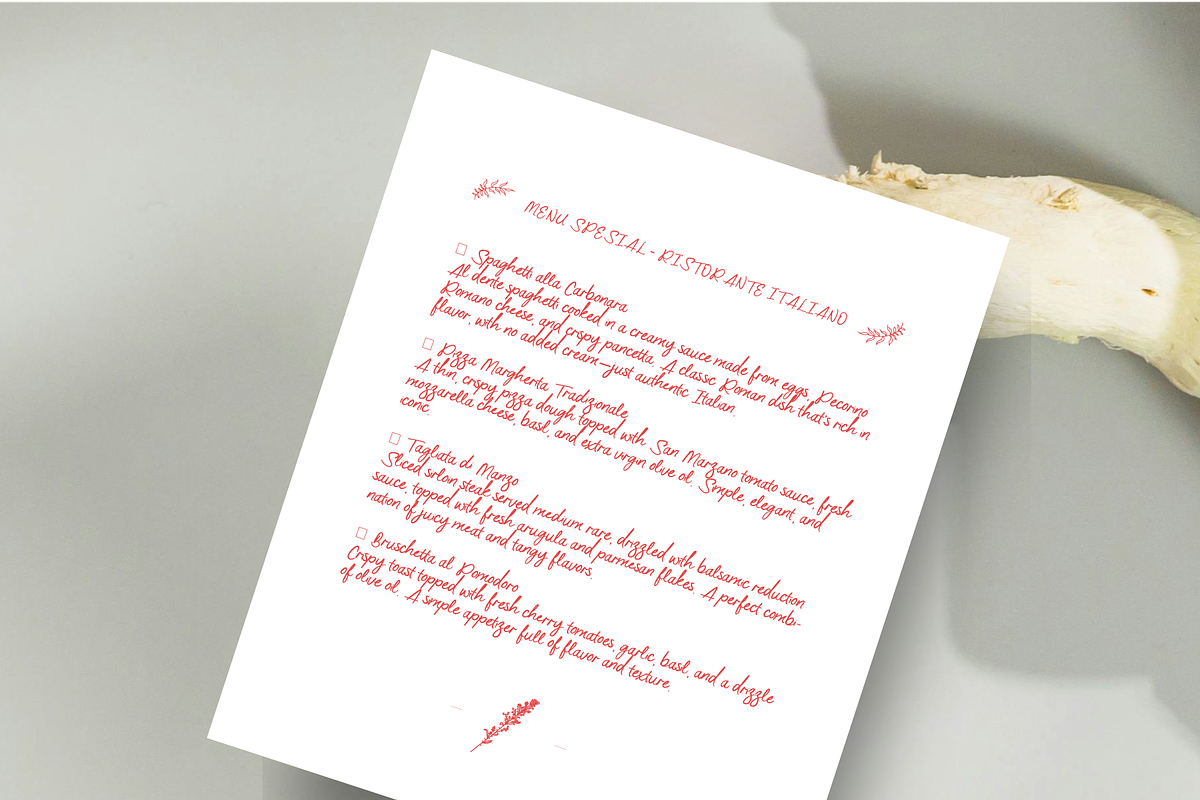 MENU SPESIAL - RISTORANTE ITALIANO
☐ Spaghetti alla Carbonara
Al dente spaghetti cooked in a creamy sauce made from eggs, Pecorino
Romano cheese, and crispy pancetta. A classic Roman dish that's rich in
flavor, with no added cream—just authentic Italian.
☐ Pizza Margherita Tradizionale
A thin, crispy pizza dough topped with San Marzano tomato sauce, fresh
mozzarella cheese, basil, and extra virgin olive oil. Simple, elegant, and
iconic.
☐ Tagliata di Manzo
Sliced sirloin steak served medium rare, drizzled with balsamic reduction
sauce, topped with fresh arugula and parmesan flakes. A perfect combi-
nation of juicy meat and tangy flavors.
☐ Bruschetta al Pomodoro
Crispy toast topped with fresh cherry tomatoes, garlic, basil, and a drizzle
of olive oil. A simple appetizer full of flavor and texture.